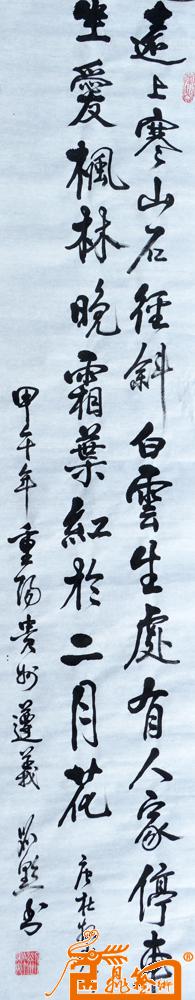 遠上寒山石徑斜白雲生處有人家停車
坐愛楓林晚霜葉紅於二月花
唐杜牧
甲午年重陽貴州遵義